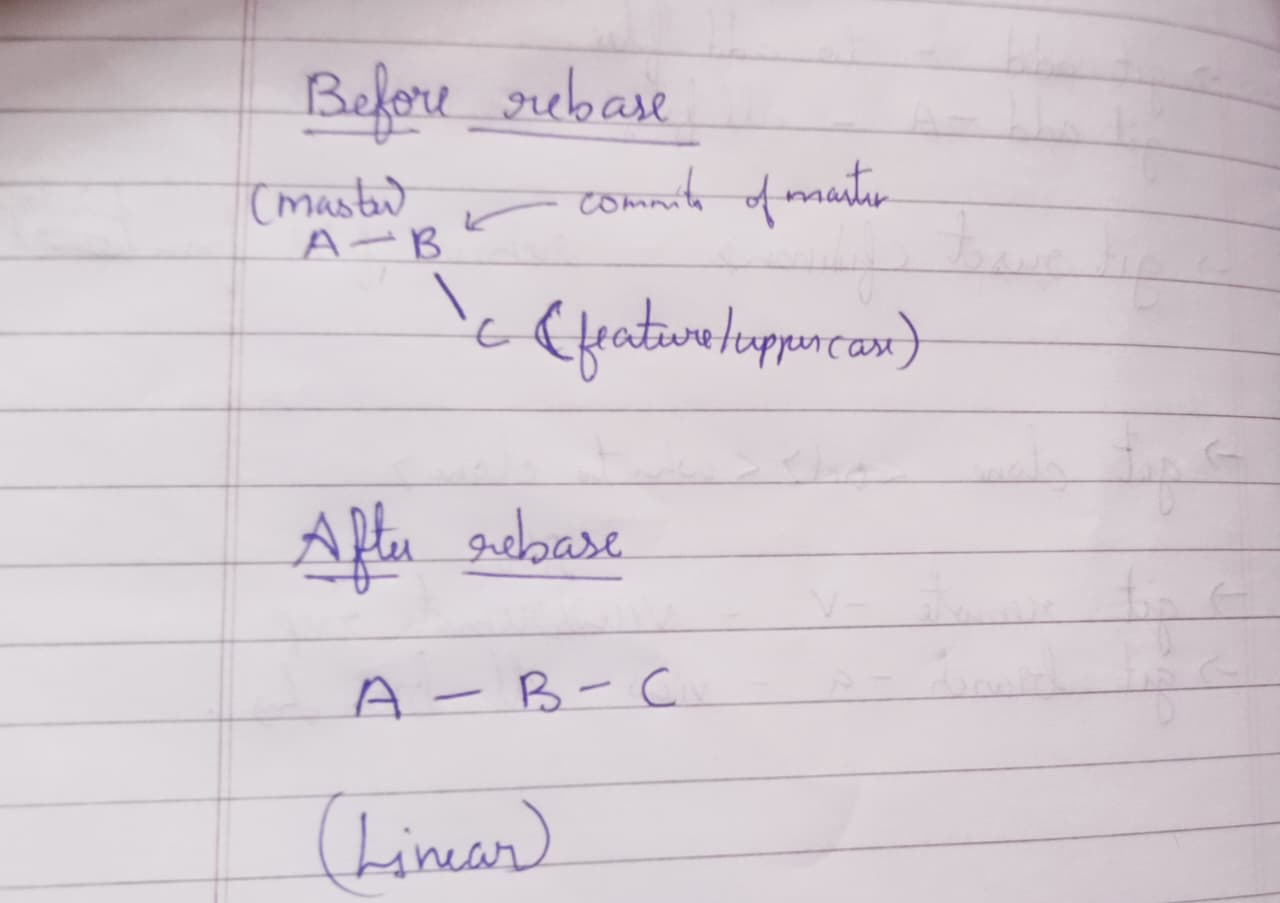 Before rebase
(master) commits of master
A — B
C (feature/uppercase)
After rebase
A — B — C
(Linear)